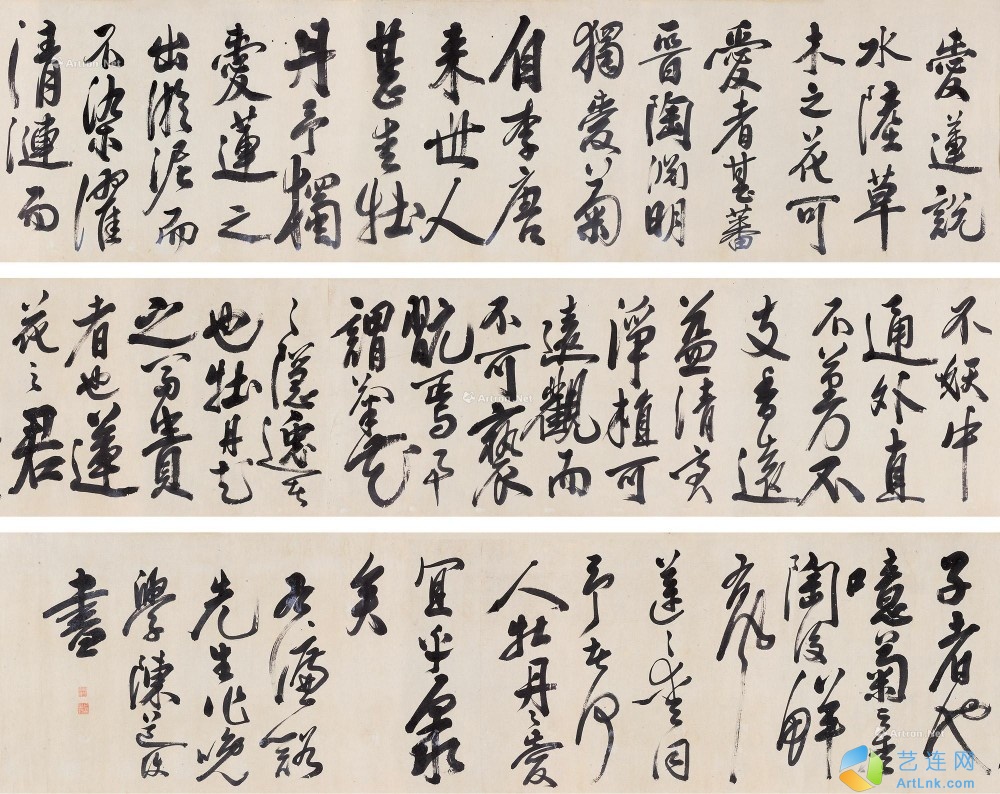 愛蓮說
水陸草
木之花可
愛者甚蕃
晉陶淵明
獨愛菊
自李唐
来世人
甚愛牡
丹予獨
愛蓮之
出淤泥而
不染濯
清漣而
不妖中
通外直
不蔓不
支香遠
益清亭
淨植可
遠觀而
不可褻
翫焉予
謂菊花
之隱逸者
也牡丹花
之富貴
者也蓮
花之君
子者也
噫菊之愛
陶後鮮
有聞
蓮之愛同
予者何
人牡丹之愛
宜乎眾
矣
右濂谿
先生作晚
學陳道復
書
Artron.Net
Artron.Net
Artron.Net
艺连网
ArtLnk.com